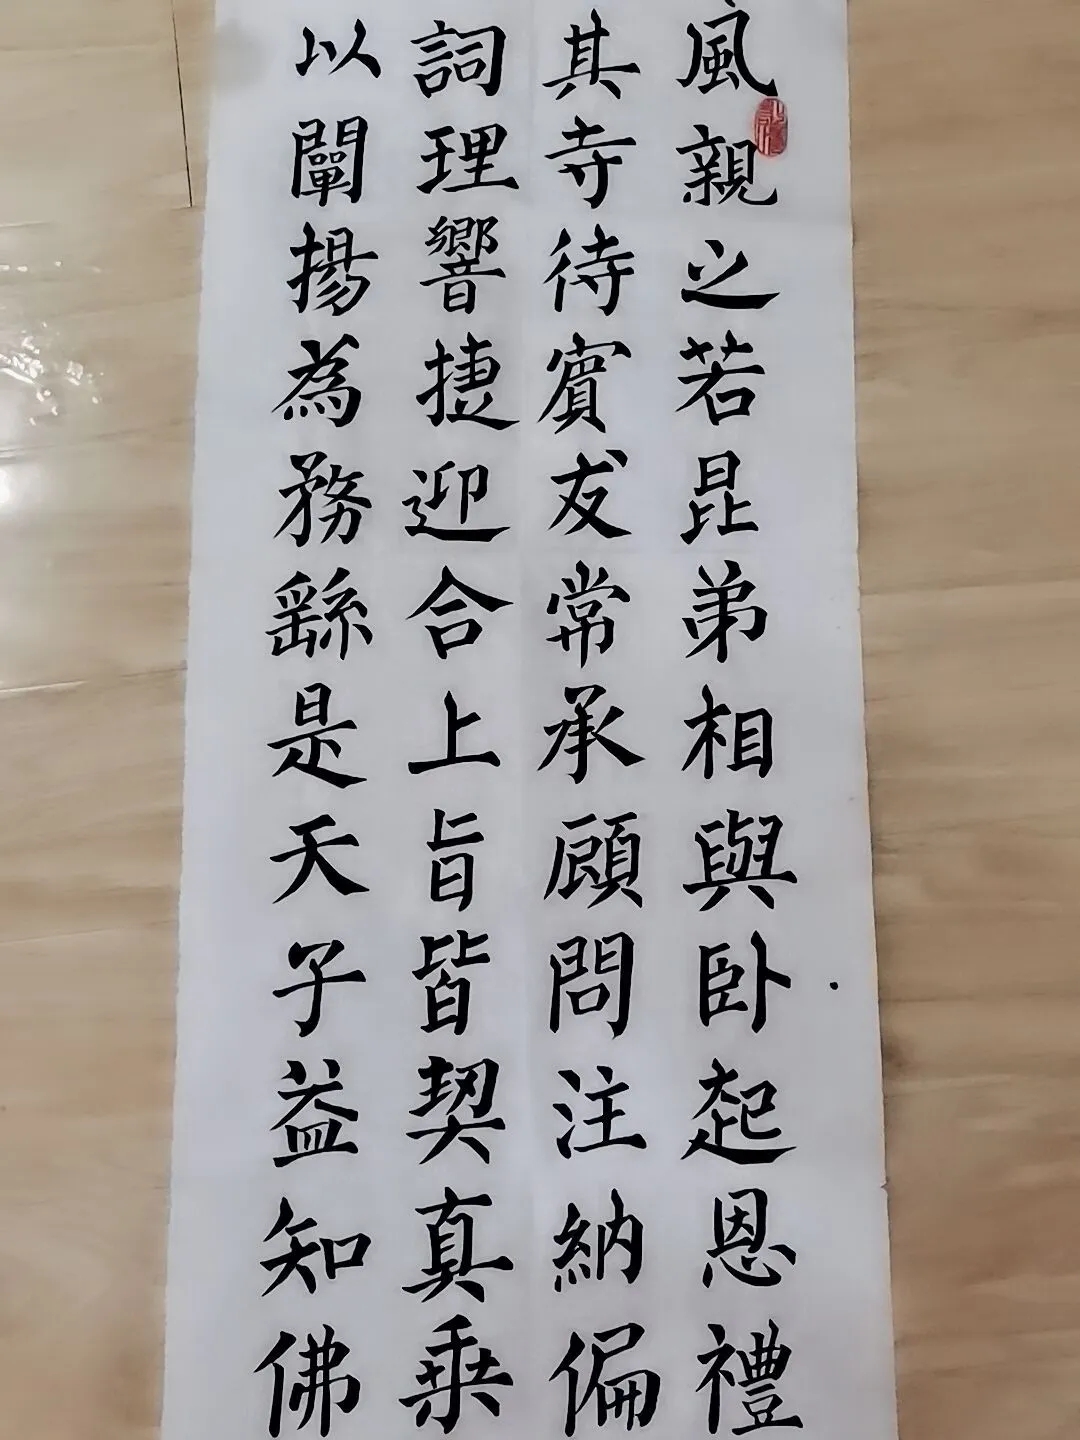 風親之若昆弟相與卧起恩禮
其寺待賓友常承顧問注納偏
詞理響捷迎合上旨皆契真乘
以闡揚為務繇是天子益知佛